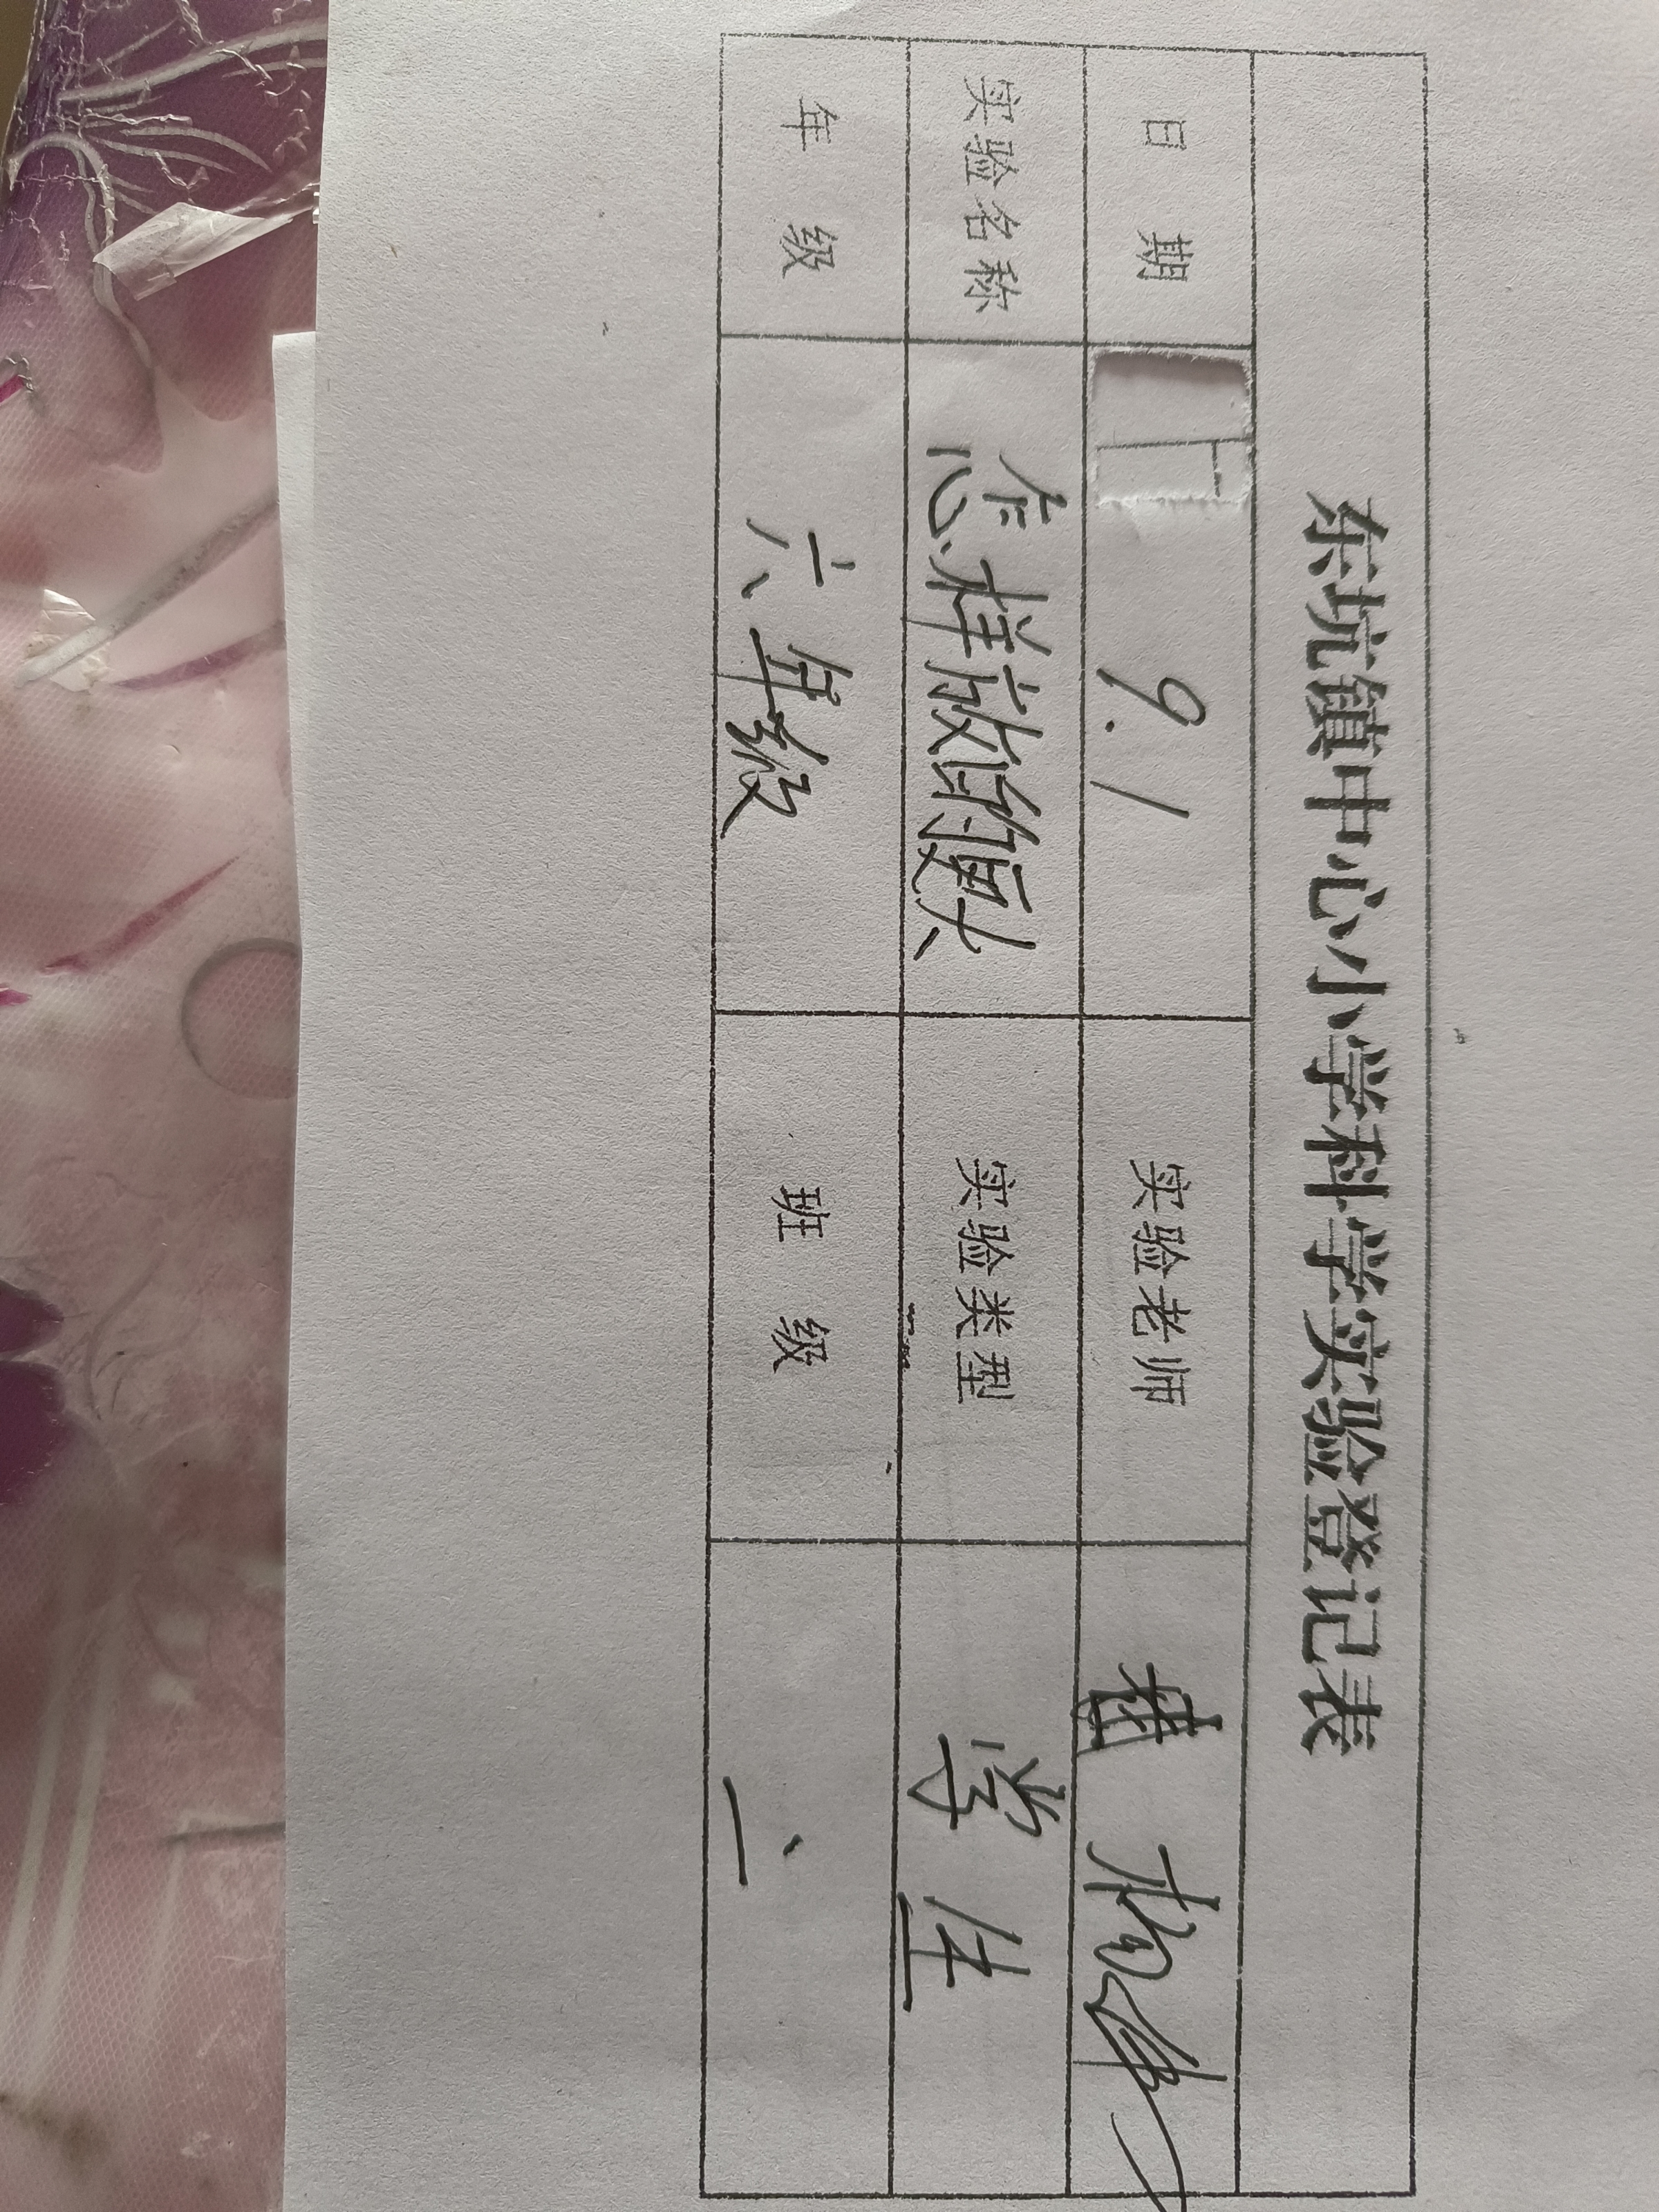 东坑镇中心小学科学实验登记表
日 期 9.1 实验老师 黄
实验名称 怎样放馒头 实验类型 学生
年 级 六年级 班 级 二